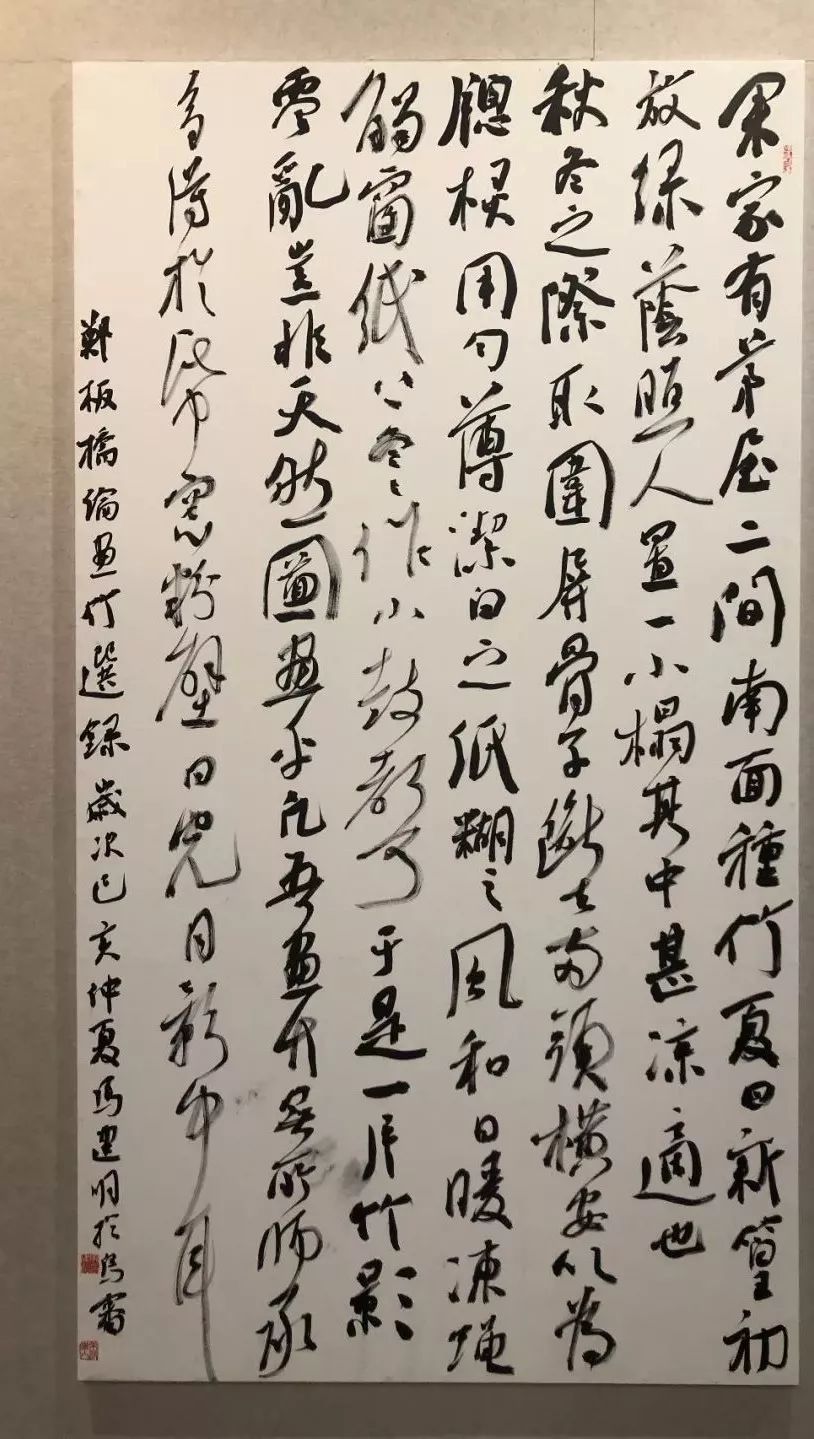 余家有茅屋二間南面種竹夏日新篁初
放绿蔭照人置一小榻其中甚凉適也
秋冬之際取圍屏骨子斷去两頭橫安以為
牕棂用匀薄潔白之紙糊之風和日暖凍蝇
觸窗紙上冬冬作小鼓聲于是一片竹影
零亂豈非天然圖畫乎凡吾畫竹無所師承
多得於紙窗粉壁日光月影中耳
鄭板橋論畫竹選録歲次己亥仲夏馬建明於烏審